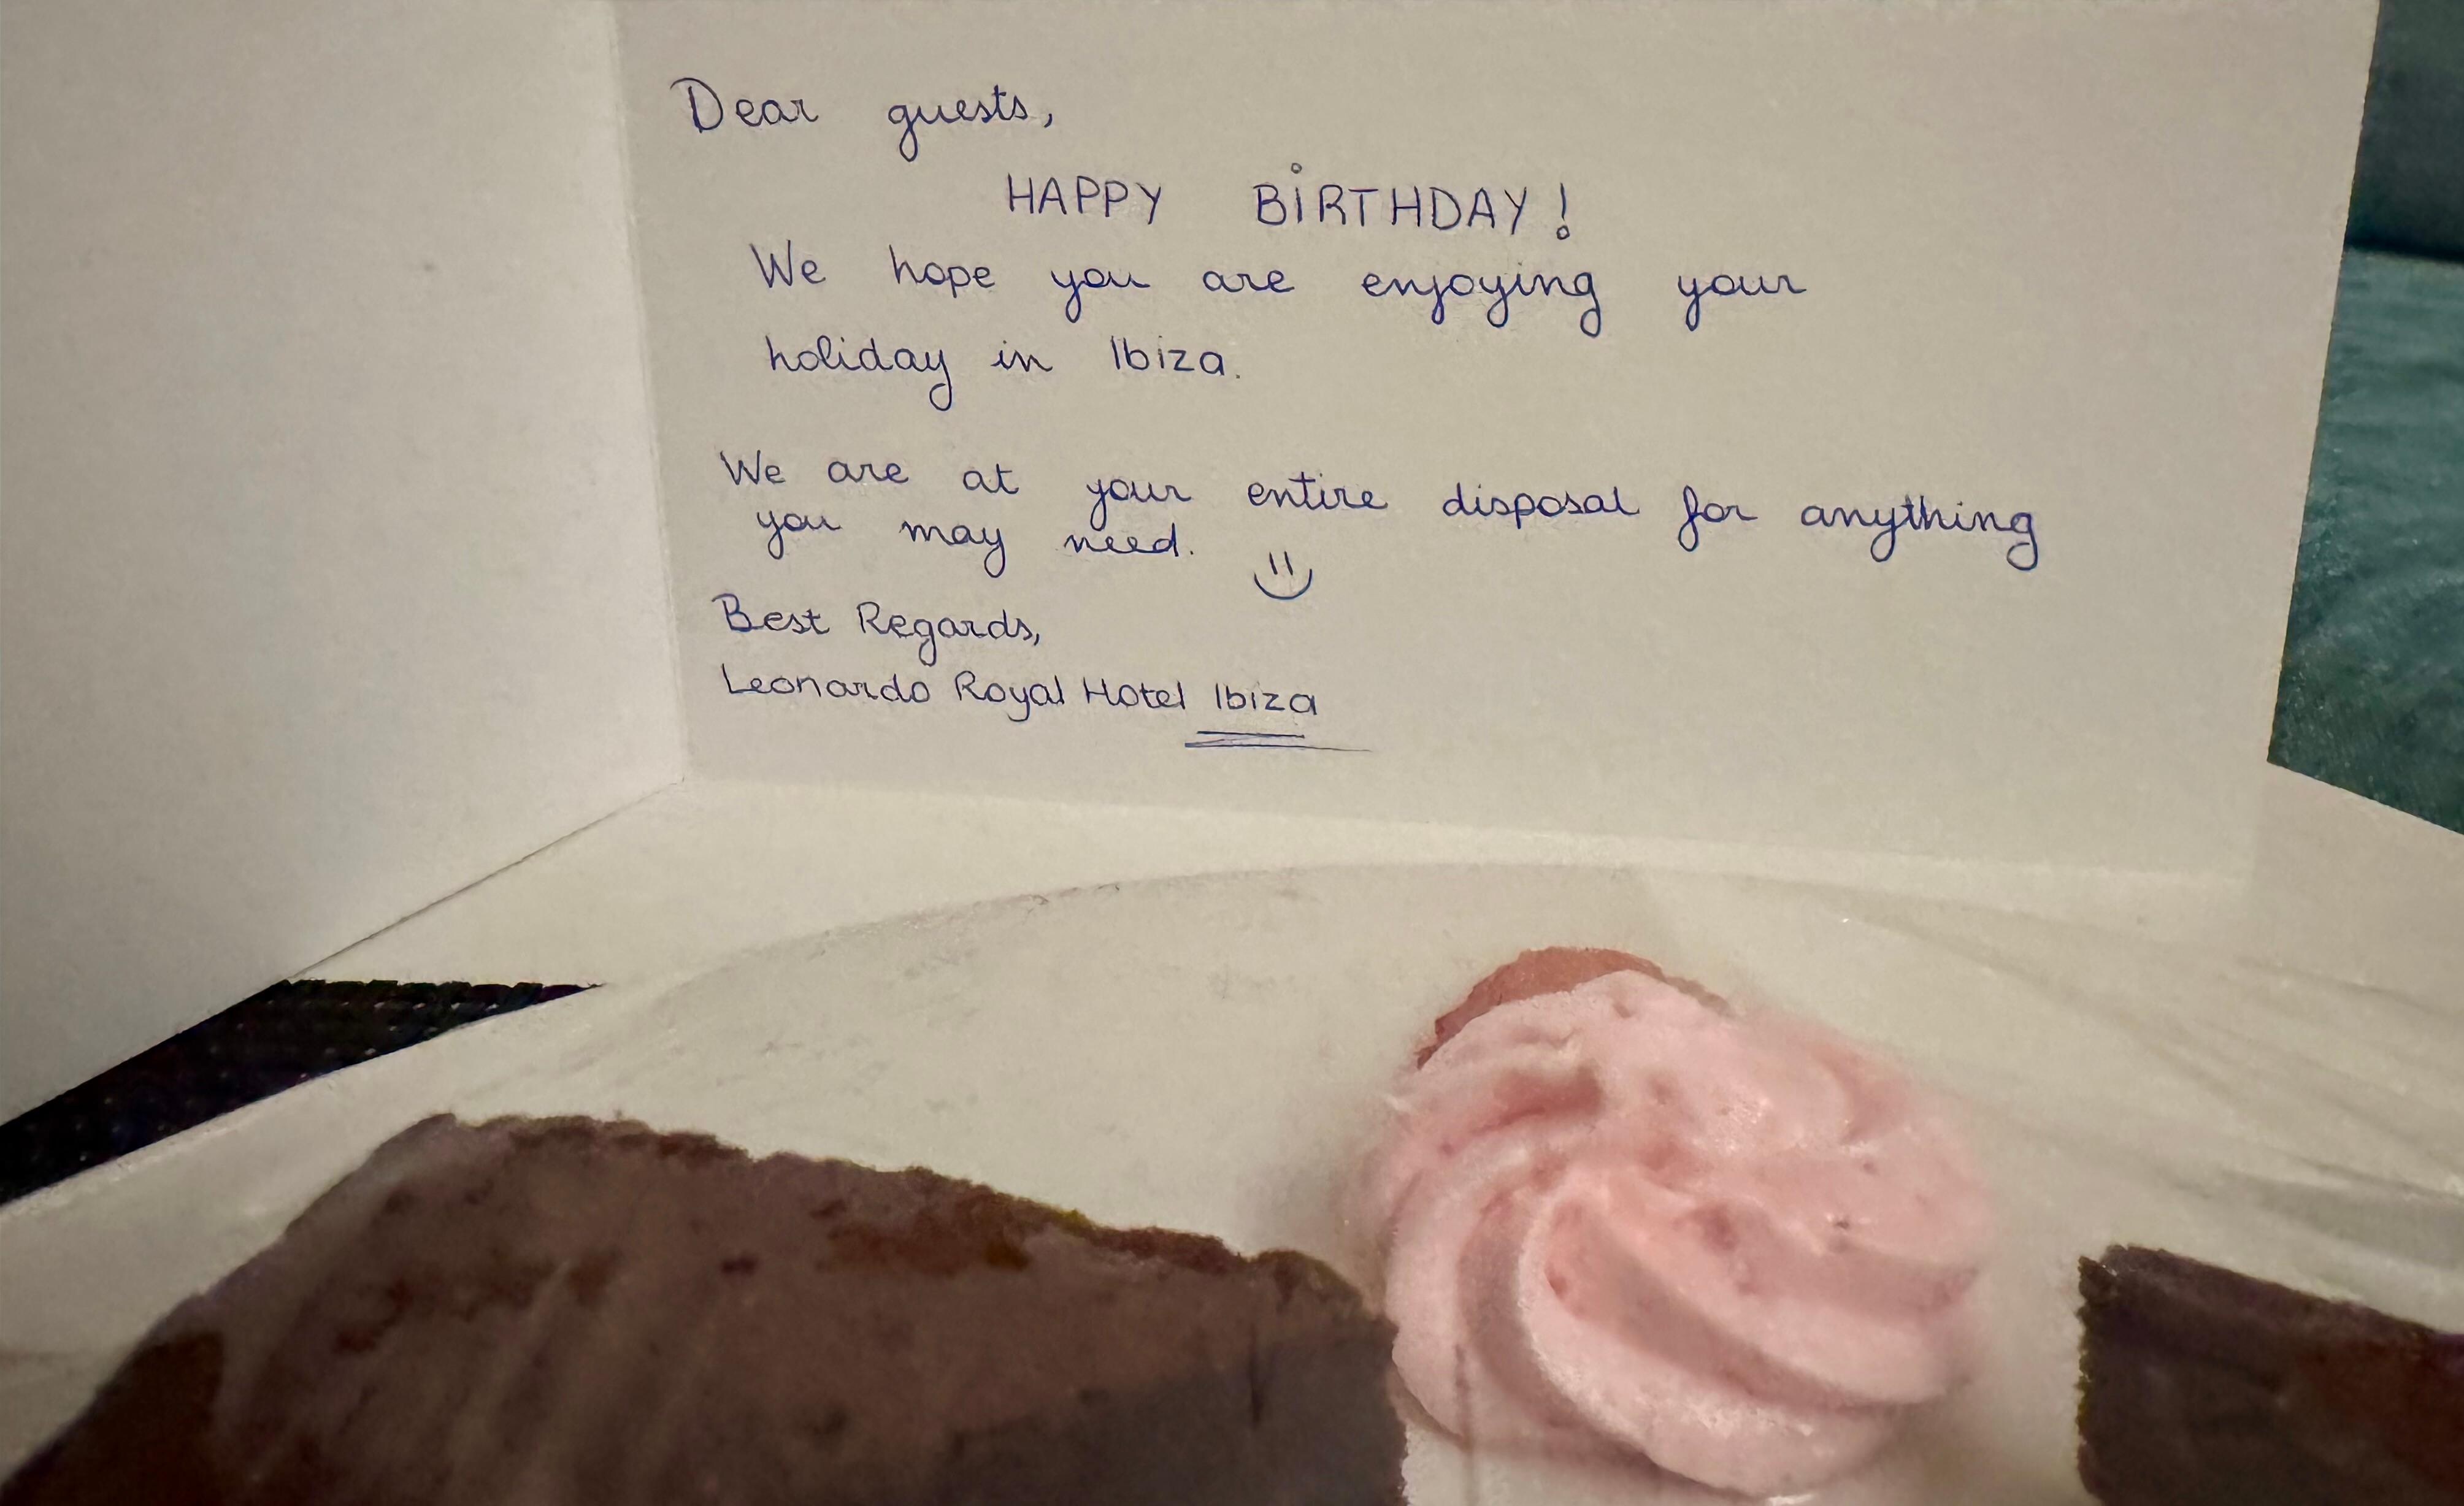 Dear guests,
HAPPY BIRTHDAY!
We hope you are enjoying your
holiday in Ibiza.
We are at your entire disposal for anything
you may need.
Best Regards,
Leonardo Royal Hotel Ibiza